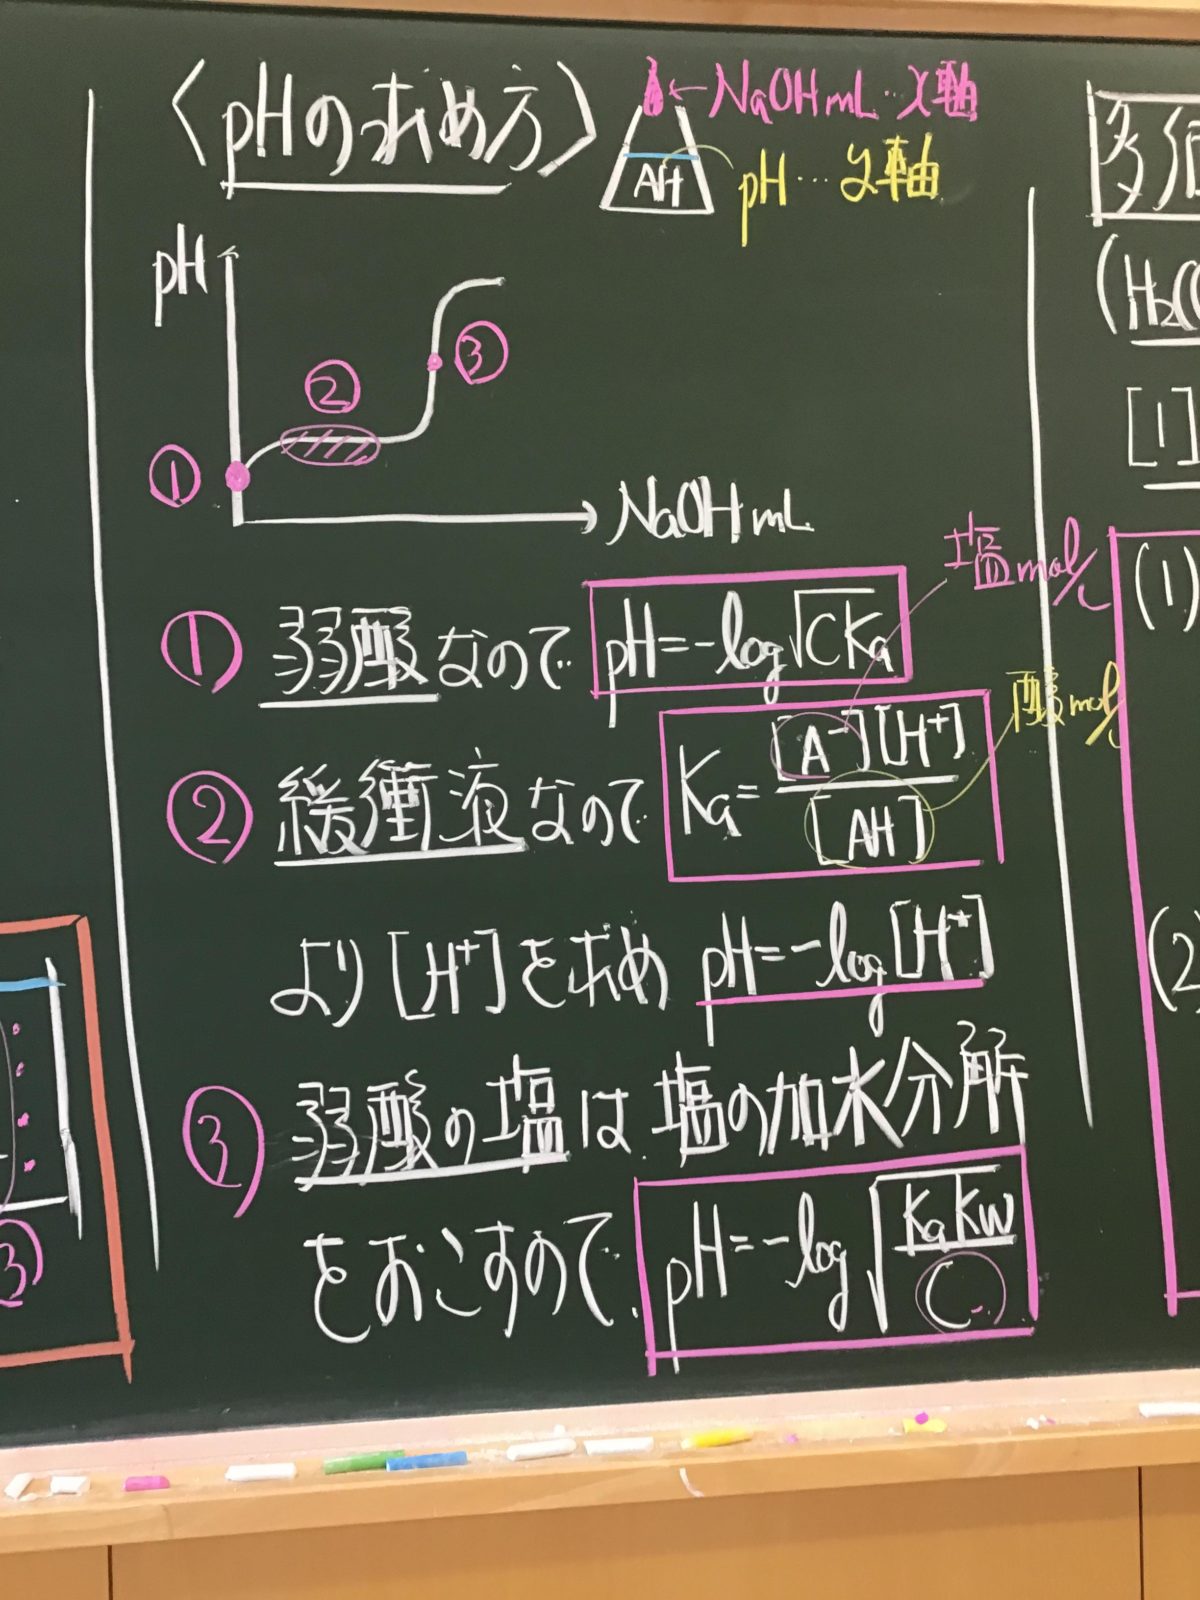 〈pHの求め方〉
←NaOH mL…x軸
AH
pH…y軸
pH
①
②
③
→NaOH mL
① 弱酸なので pH=-log√CKa
塩mol/L
② 緩衝液なので Ka=[A⁻][H⁺]/[AH]
酸mol/L
より[H⁺]を求め pH=-log[H⁺]
③ 弱酸の塩は塩の加水分解
をおこすので pH=-log√KaKw/C
③
(H₂
[1]
(1)
(2)